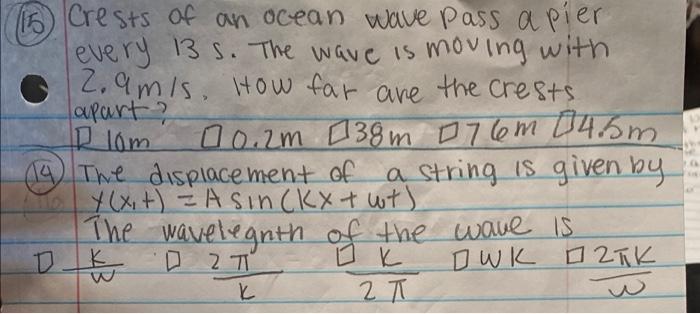 15 Crests of an ocean wave pass a pier
every 13 s. The wave is moving with
2.9 m/s. How far are the crests
apart?
□ 10m □ 0.2m □ 38m □ 76m □ 4.5m
14 The displacement of a string is given by
y(x,t) = A sin(kx + wt)
The wavelegnth of the wave is
□ k/w □ 2π/k □ k/2π □ wk □ 2πk/w